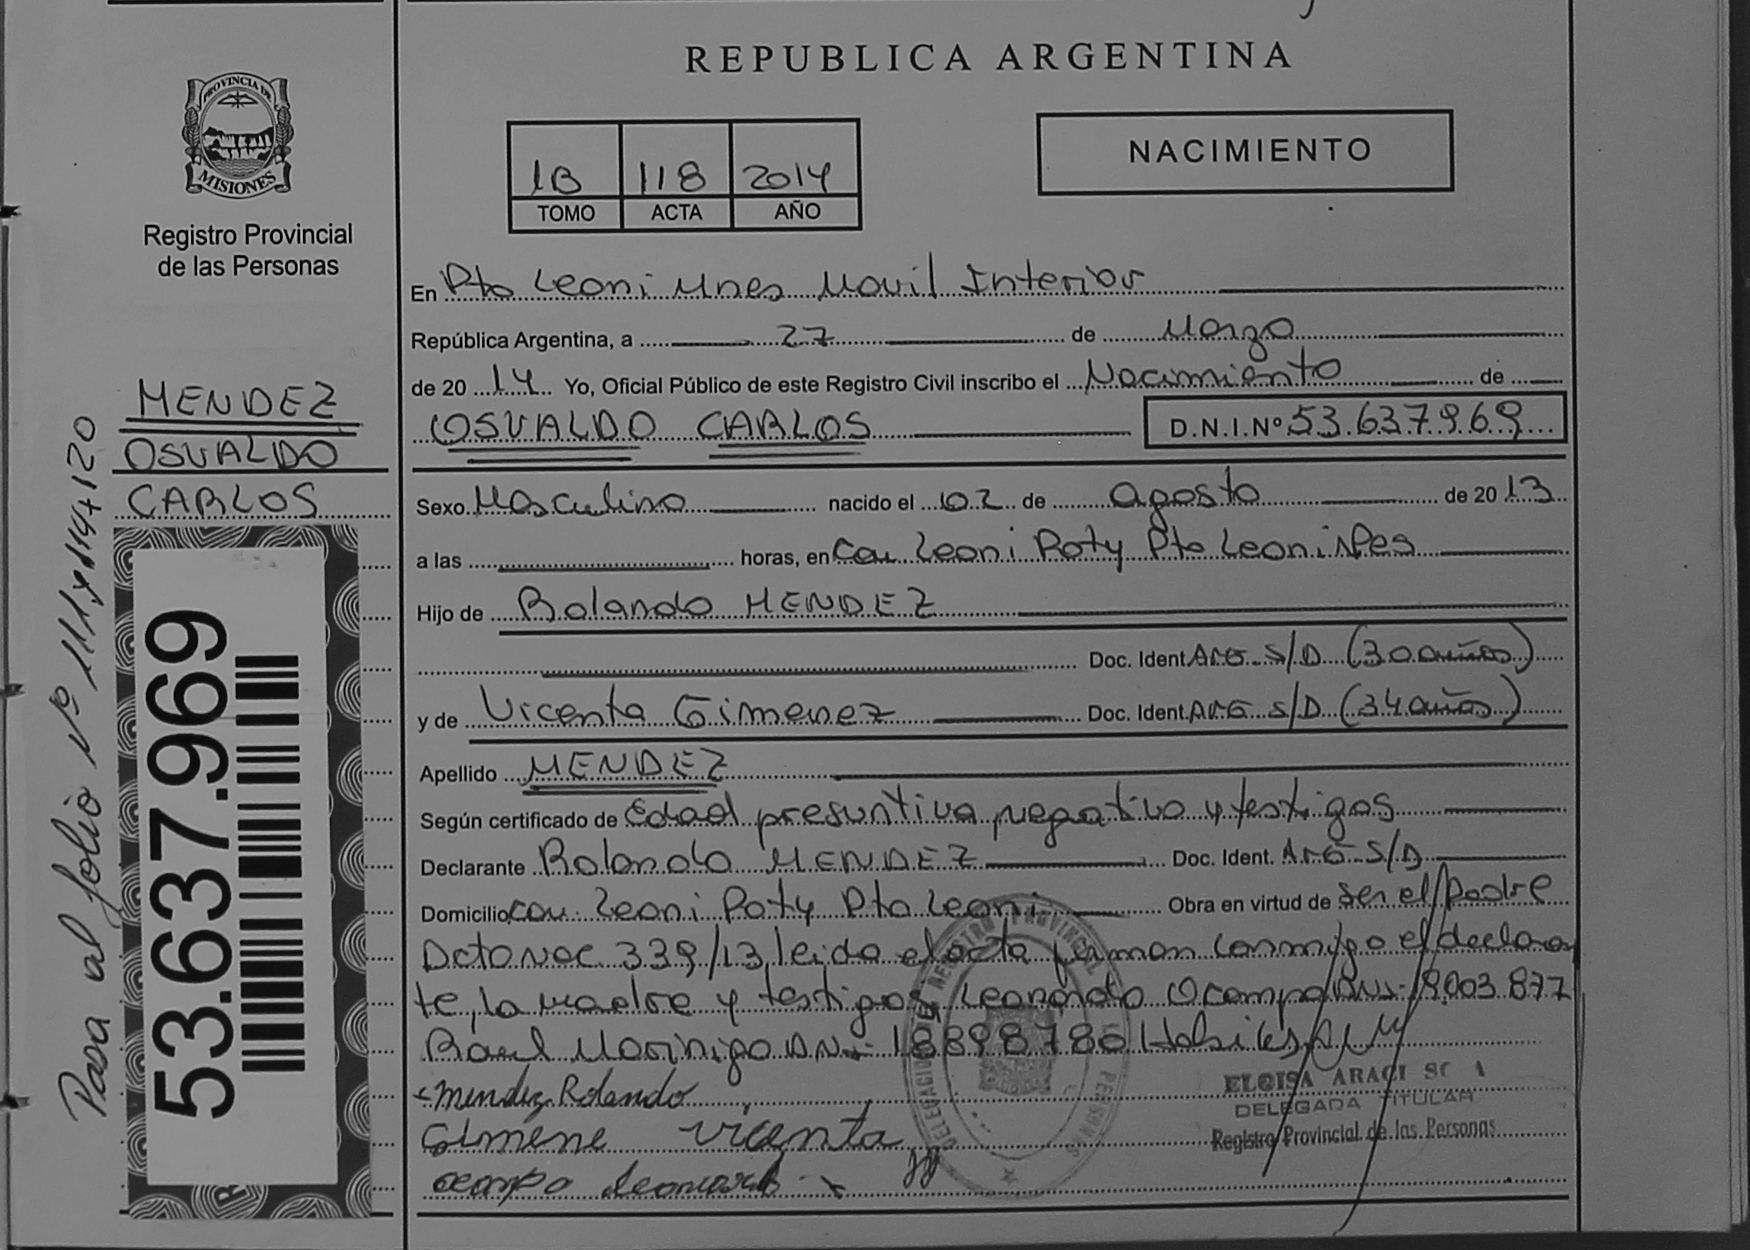 REPUBLICA ARGENTINA
PROVINCIA DE
MISIONES
Registro Provincial
de las Personas
1B 118 2014
TOMO ACTA AÑO
NACIMIENTO
En Pto Leoni Mnes Movil Interior
República Argentina, a 27 de Marzo
de 2014 Yo, Oficial Público de este Registro Civil inscribo el Nacimiento de
OSVALDO CARLOS D.N.I.Nº 53.637.969
MENDEZ
OSVALDO
CARLOS
Sexo Masculino nacido el 02 de agosto de 2013
a las horas, en Leoni Poty Pto Leoni
Hijo de Rolando MENDEZ
Doc. Ident ARG S/D (30 años)
y de Vicenta Gimenez Doc. Ident. ARG S/D (34 años)
Apellido MENDEZ
Según certificado de Edad presuntiva, negativo y testigos
Declarante Rolando MENDEZ Doc. Ident. ARG S/D
Domicilio Leoni Poty Pto Leoni Obra en virtud de ser el padre
Dcto Nac 339/13, leida el acta firman conmigo el declaran
te, la madre y testigos Leonardo Ocampo 003.877
Raul Morinigo 18898780
Mendez Rolando
Gimene vicenta
ocampo
ELOISA ARACI
DELEGADA TITULAR
Registro Provincial de las Personas
53.637.969
Pasa al folio Nº